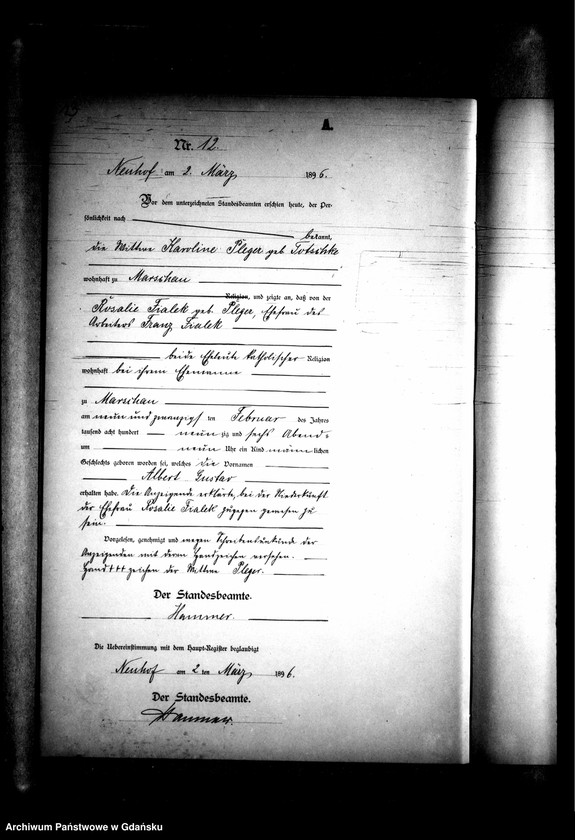 A.
Nr. 12.
Neuhof am 2. März 1896.
Vor dem unterzeichneten Standesbeamten erschien heute, der Per-
sönlichkeit nach
bekannt,
die Wittwe Karoline Pleger geb Totschke
wohnhaft zu Marschau
Religion, und zeigte an, daß von der
Rosalie Fialek geb. Pleger, Ehefrau des
Arbeiters Franz Fialek
beide Eheleute katholischer Religion
wohnhaft bei ihrem Ehemanne
zu Marschau
am neun und zwanzigsten Februar des Jahres
tausend acht hundert neunzig und sechs Abends
um neun Uhr ein Kind männlichen
Geschlechts geboren worden sei, welches die Vornamen
Albert Gustav
erhalten habe. Die Anzeigende erklärte, bei der Niederkunft
der Ehefrau Rosalie Fialek zugegen gewesen zu
sein.
Vorgelesen, genehmigt und wegen Schreibensunkunde der
Anzeigenden mit deren Handzeichen versehen.
Hand +++ zeichen der Wittwe Pleger.
Der Standesbeamte.
Hammer.
Die Uebereinstimmung mit dem Haupt-Register beglaubigt
Neuhof am 2 ten März 1896.
Der Standesbeamte.
Hammer.
Archiwum Państwowe w Gdańsku